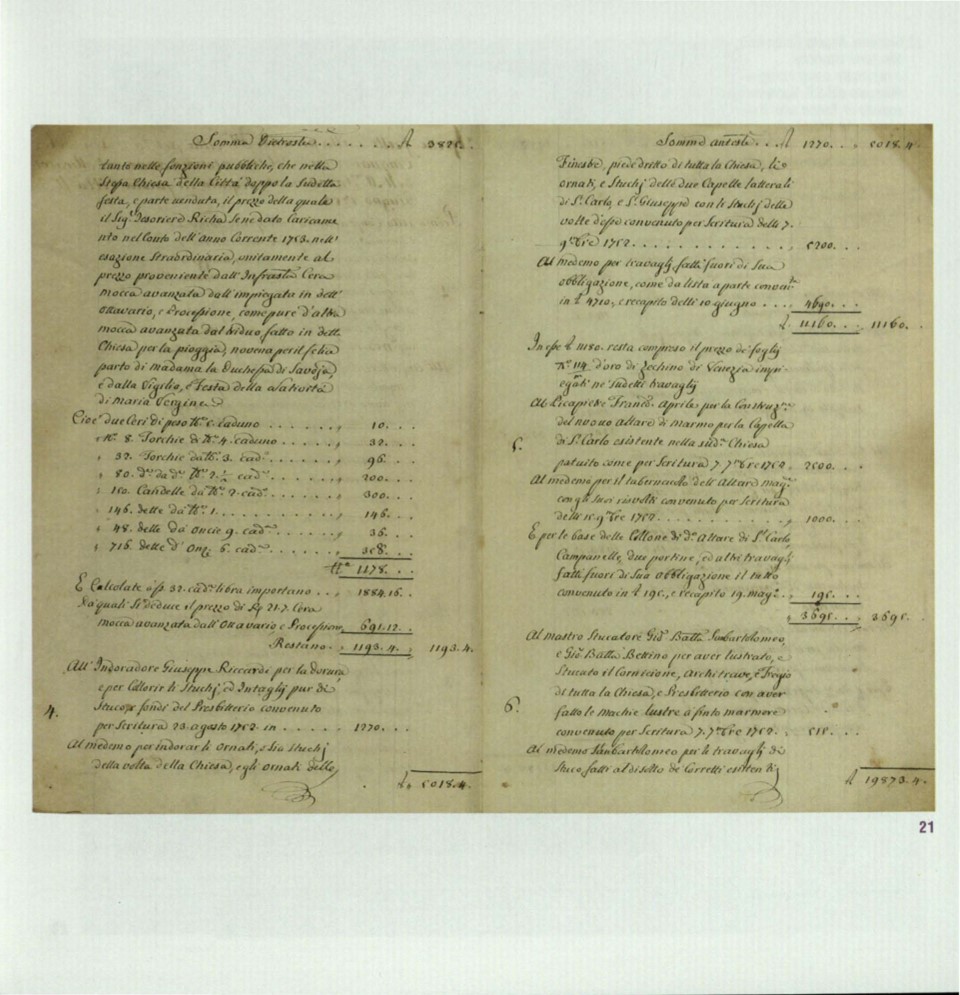 Somma Dietroscta . . . . . . . £ 3825. .
tanto nelle fonzioni pubbliche, che nella
stessa Chiesa della Città doppo la sudetta
festa, e parte venduta, il prezzo della quale
il Sigr. Tesoriere Richa se ne dato Caricame
nto nel Conto dell'anno Corrente 1753. nell'
esazione straordinaria, unitamente al
prezzo proveniente dall'Infrasta Cera
mocca avanzata dall'impiegata in dett'
ottavario, e Processione, come pure d'altra
mocca avanzata dal triduo fatto in detta
Chiesa per la pioggia, novena per il felice
parto di madama la Duchessa di Savoja,
e dalla Vigilia, e Festa della Natività
di Maria Vergine
Cioè due Ceri di peso ℔. 5. caduno . . . . . . , 10. . .
n°. 8. Torchie di ℔. 4. caduno . . . . . , 32. . .
, 32. Torchie da ℔. 3. cad. . . . . . . , 96. . .
, 80. de. da de. ℔. 2. ½ cad. . . . . . . , 200. . .
, 150. Candelle da ℔. 2. cad. . . . . . . , 300. . .
, 146. dette da ℔. 1. . . . . . . . . . , 146. . .
, 48. dette da oncie 9. cad. . . . . . , 36. . .
, 716. dette d'onze 6. cad. . . . . . , 358. . .
℔ 1178. . .
E Calcolate a s. 32. cad. libra importano . . , 1884.16. .
Da quali si deduce il prezzo di 21.7. Cera
mocca avanzata dall'Ottavario e Processione , 691.12. .
Restano. , 1193.4. , 1193.4.
4. All'Indoradore Giuseppe Riccardi per la dorura,
e per Collorir li stuchj, ed Intagli pur di
stuco, e fondi del Presbitterio convenuto
per Scritura 23. agosto 1752. in . . . . , 1270. . .
Al medemo per indorar li ornati, e sia stuchj
della volta della Chiesa, e gli ornati delle
£ 5018.4.
Somme antescte . . . £ 1270. . . , 5018.4.
Finestre, piededritto di tutta la Chiesa, li
ornati, e stuchj delle due Capelle latterali
di St. Carlo, e St. Giuseppe con li stuchj delle
volte d'esse convenuto per Scritura delli 7.
9bre 1752. . . . . . . . . . . . . . , 5200. . .
Al medemo per travaglj fatti fuori di sua
obbligazione, come da lista a parte conventa
in £ 4710., e recapito delli 10 giugno . . . , 4690. . .
£ 11160. . . , 11160.
In esse £ 11180. resta compreso il prezzo de' foglj
N°. 114 d'oro di Zecchino di Venezia impi
egati ne' sudetti travaglj
5. Al Picapietre Franco. Aprile per la Construzne.
del nuovo altare di marmo per la Capella
di St. Carlo esistente nella suda. Chiesa
patuito come per Scritura 7. 7mbre 1752. , 2500. . .
Al medemo per il tabernacolo dell'Altare magre.
con gli suoi risvolti convenuto per Scritura
delli 15. 9bre 1752. . . . . . . . . . . , 1000. . .
E per le base delle Collone di do. Altare di St. Carlo,
Campanelle, due portine, ed altri travaglj
fatti fuori di sua obbligazione il tutto
convenuto in £ 195., e recapito 19. mago. . , 195. . .
, 3695. . . , 3695.
6. Al Mastro Stucatore Gio. Batta Sanbartolomeo,
e Gio. Batta Bettino per aver lustrato, e
stucato il Cornicione, Architrave, e Fregio
di tutta la Chiesa, e Presbitterio con aver
fatto le machie lustre a finto marmore
convenuto per Scritura 7. 7mbre 1752. . , 515. . .
Al medemo Sanbartolomeo per li travaglj di
stuco fatti al disotto de' Corretti esistenti
£ 19873.4.
21